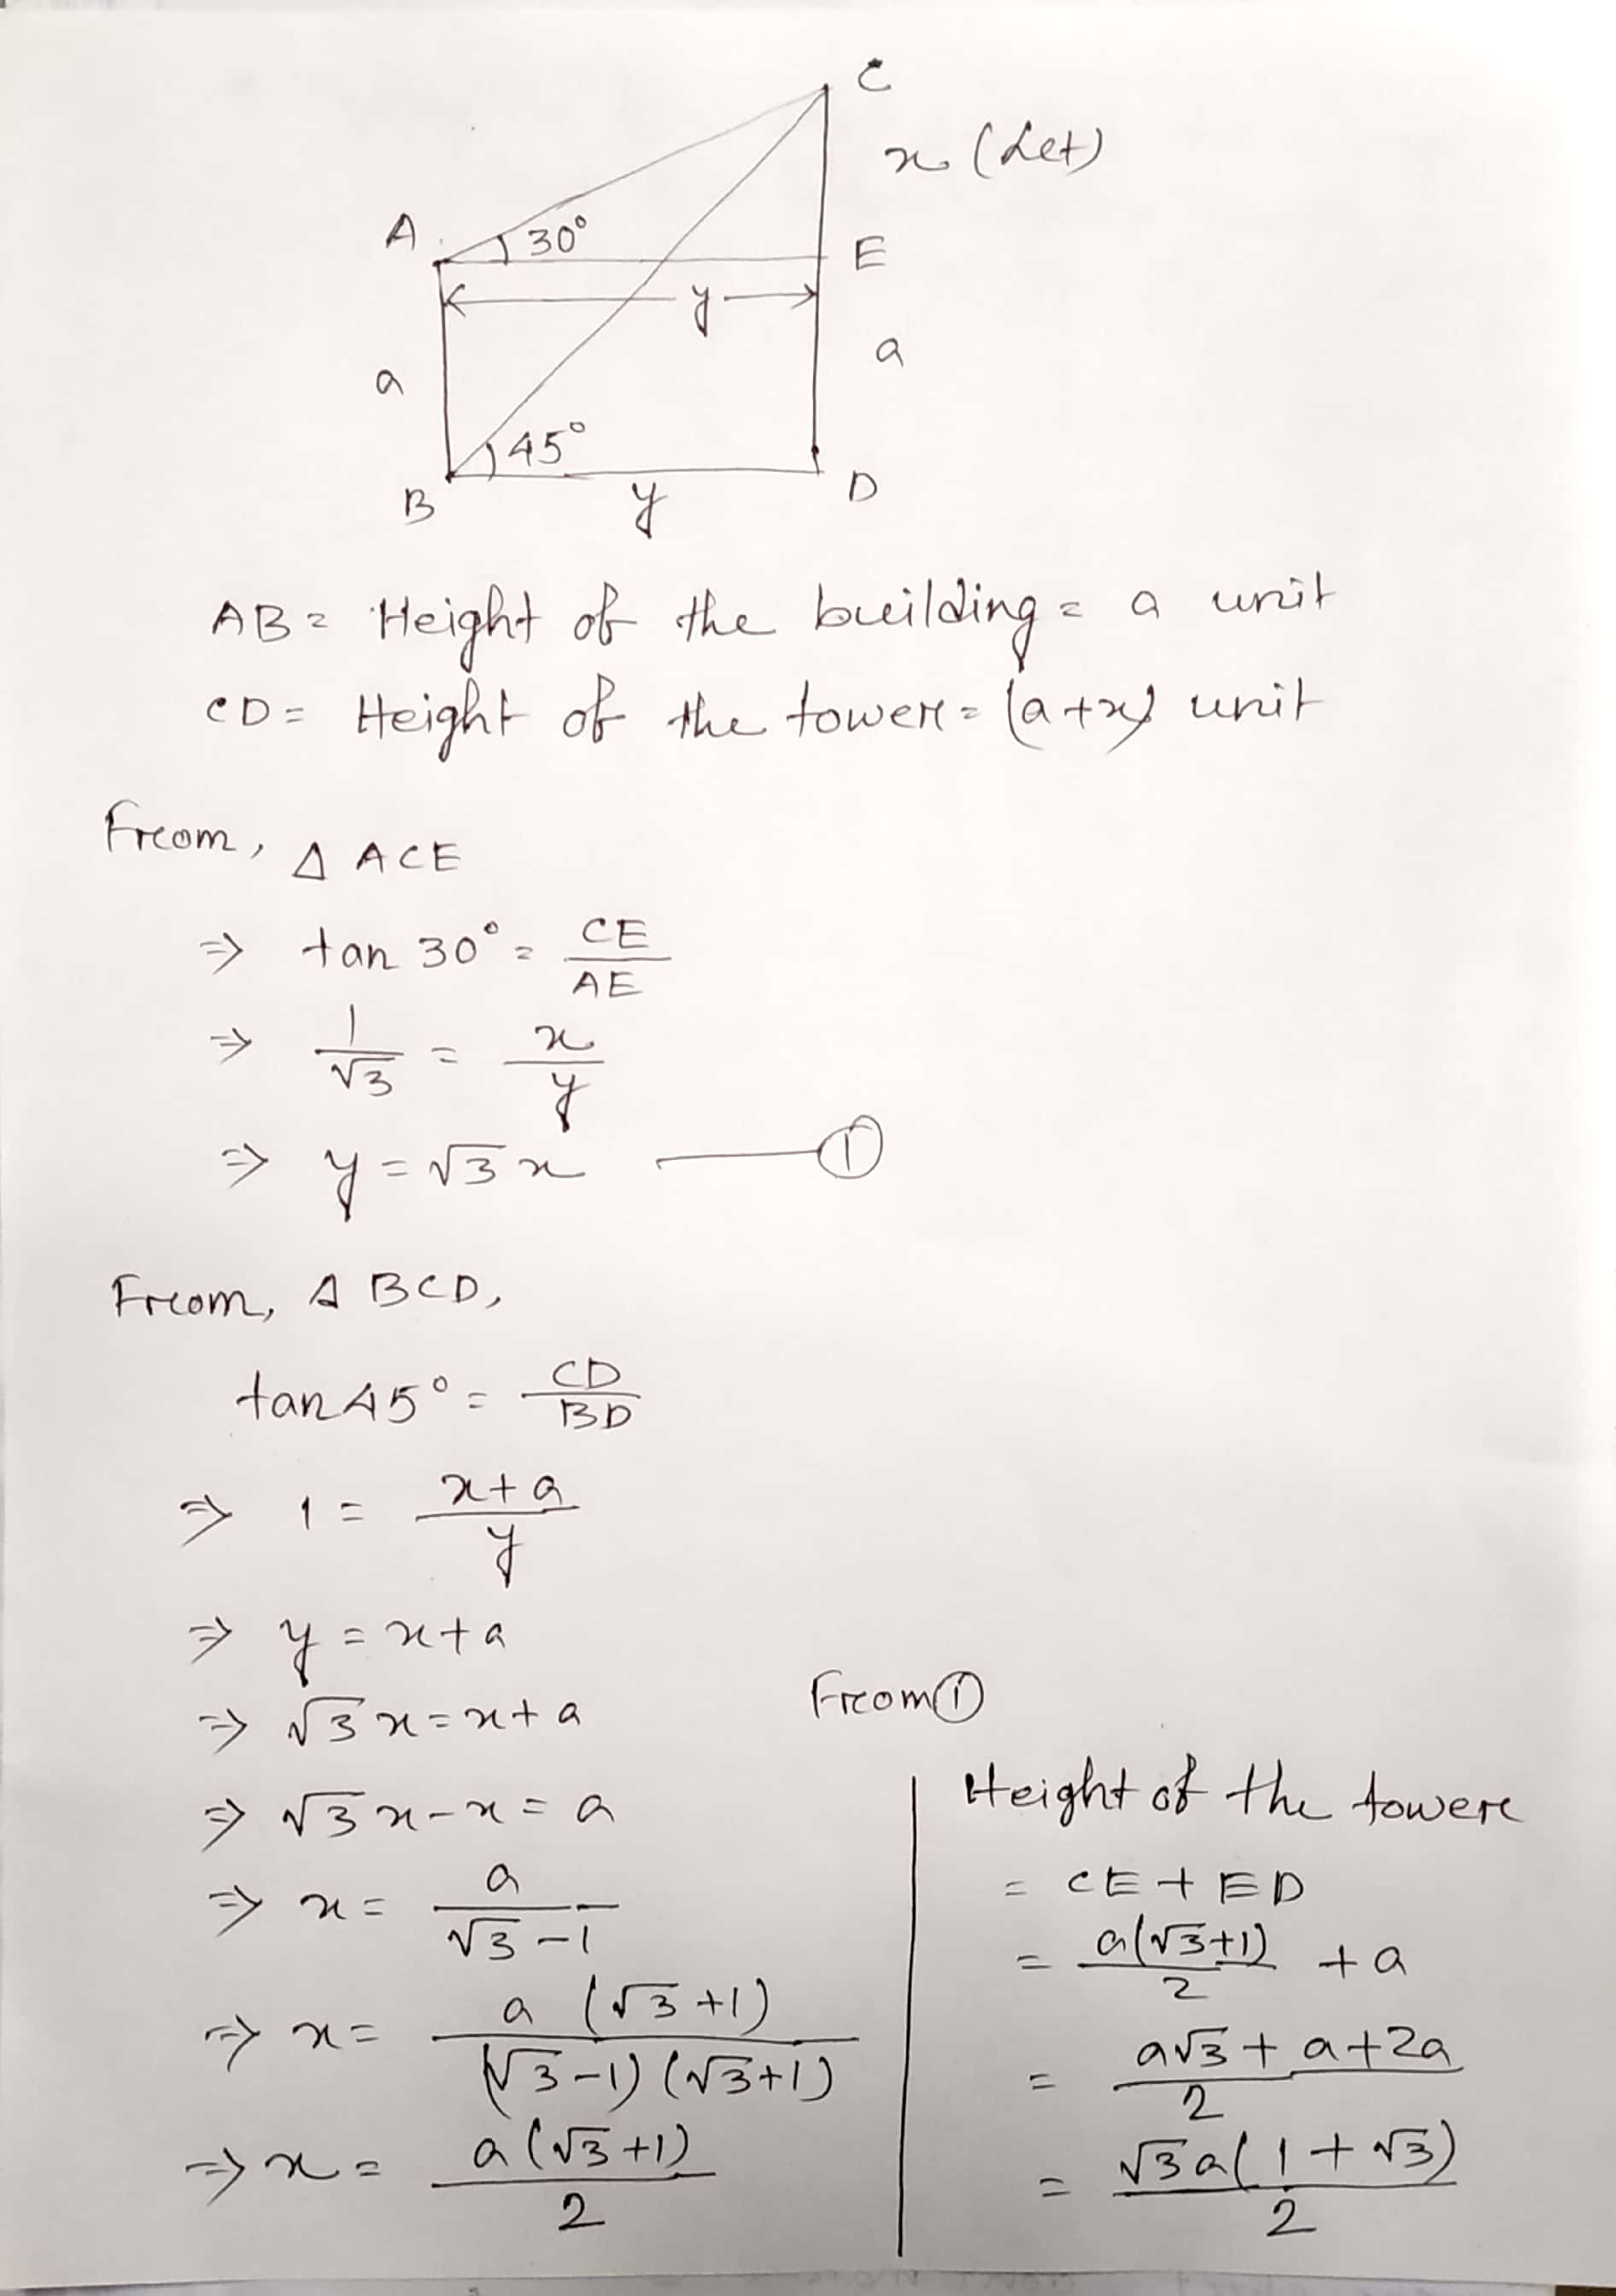 C
x (Let)
A
30°
E
y
a
a
45°
B
y
D
AB = Height of the building = a unit
CD = Height of the tower = (a+x) unit
From, Δ ACE
⇒ tan 30° = CE/AE
⇒ 1/√3 = x/y
⇒ y = √3 x —— ①
From, Δ BCD,
tan 45° = CD/BD
⇒ 1 = x+a/y
⇒ y = x+a
⇒ √3 x = x+a From ①
⇒ √3 x - x = a
⇒ x = a/√3-1
⇒ x = a (√3+1)/(√3-1) (√3+1)
⇒ x = a (√3+1)/2
Height of the tower
= CE + ED
= a(√3+1)/2 + a
= a√3 + a + 2a/2
= √3a(1+√3)/2